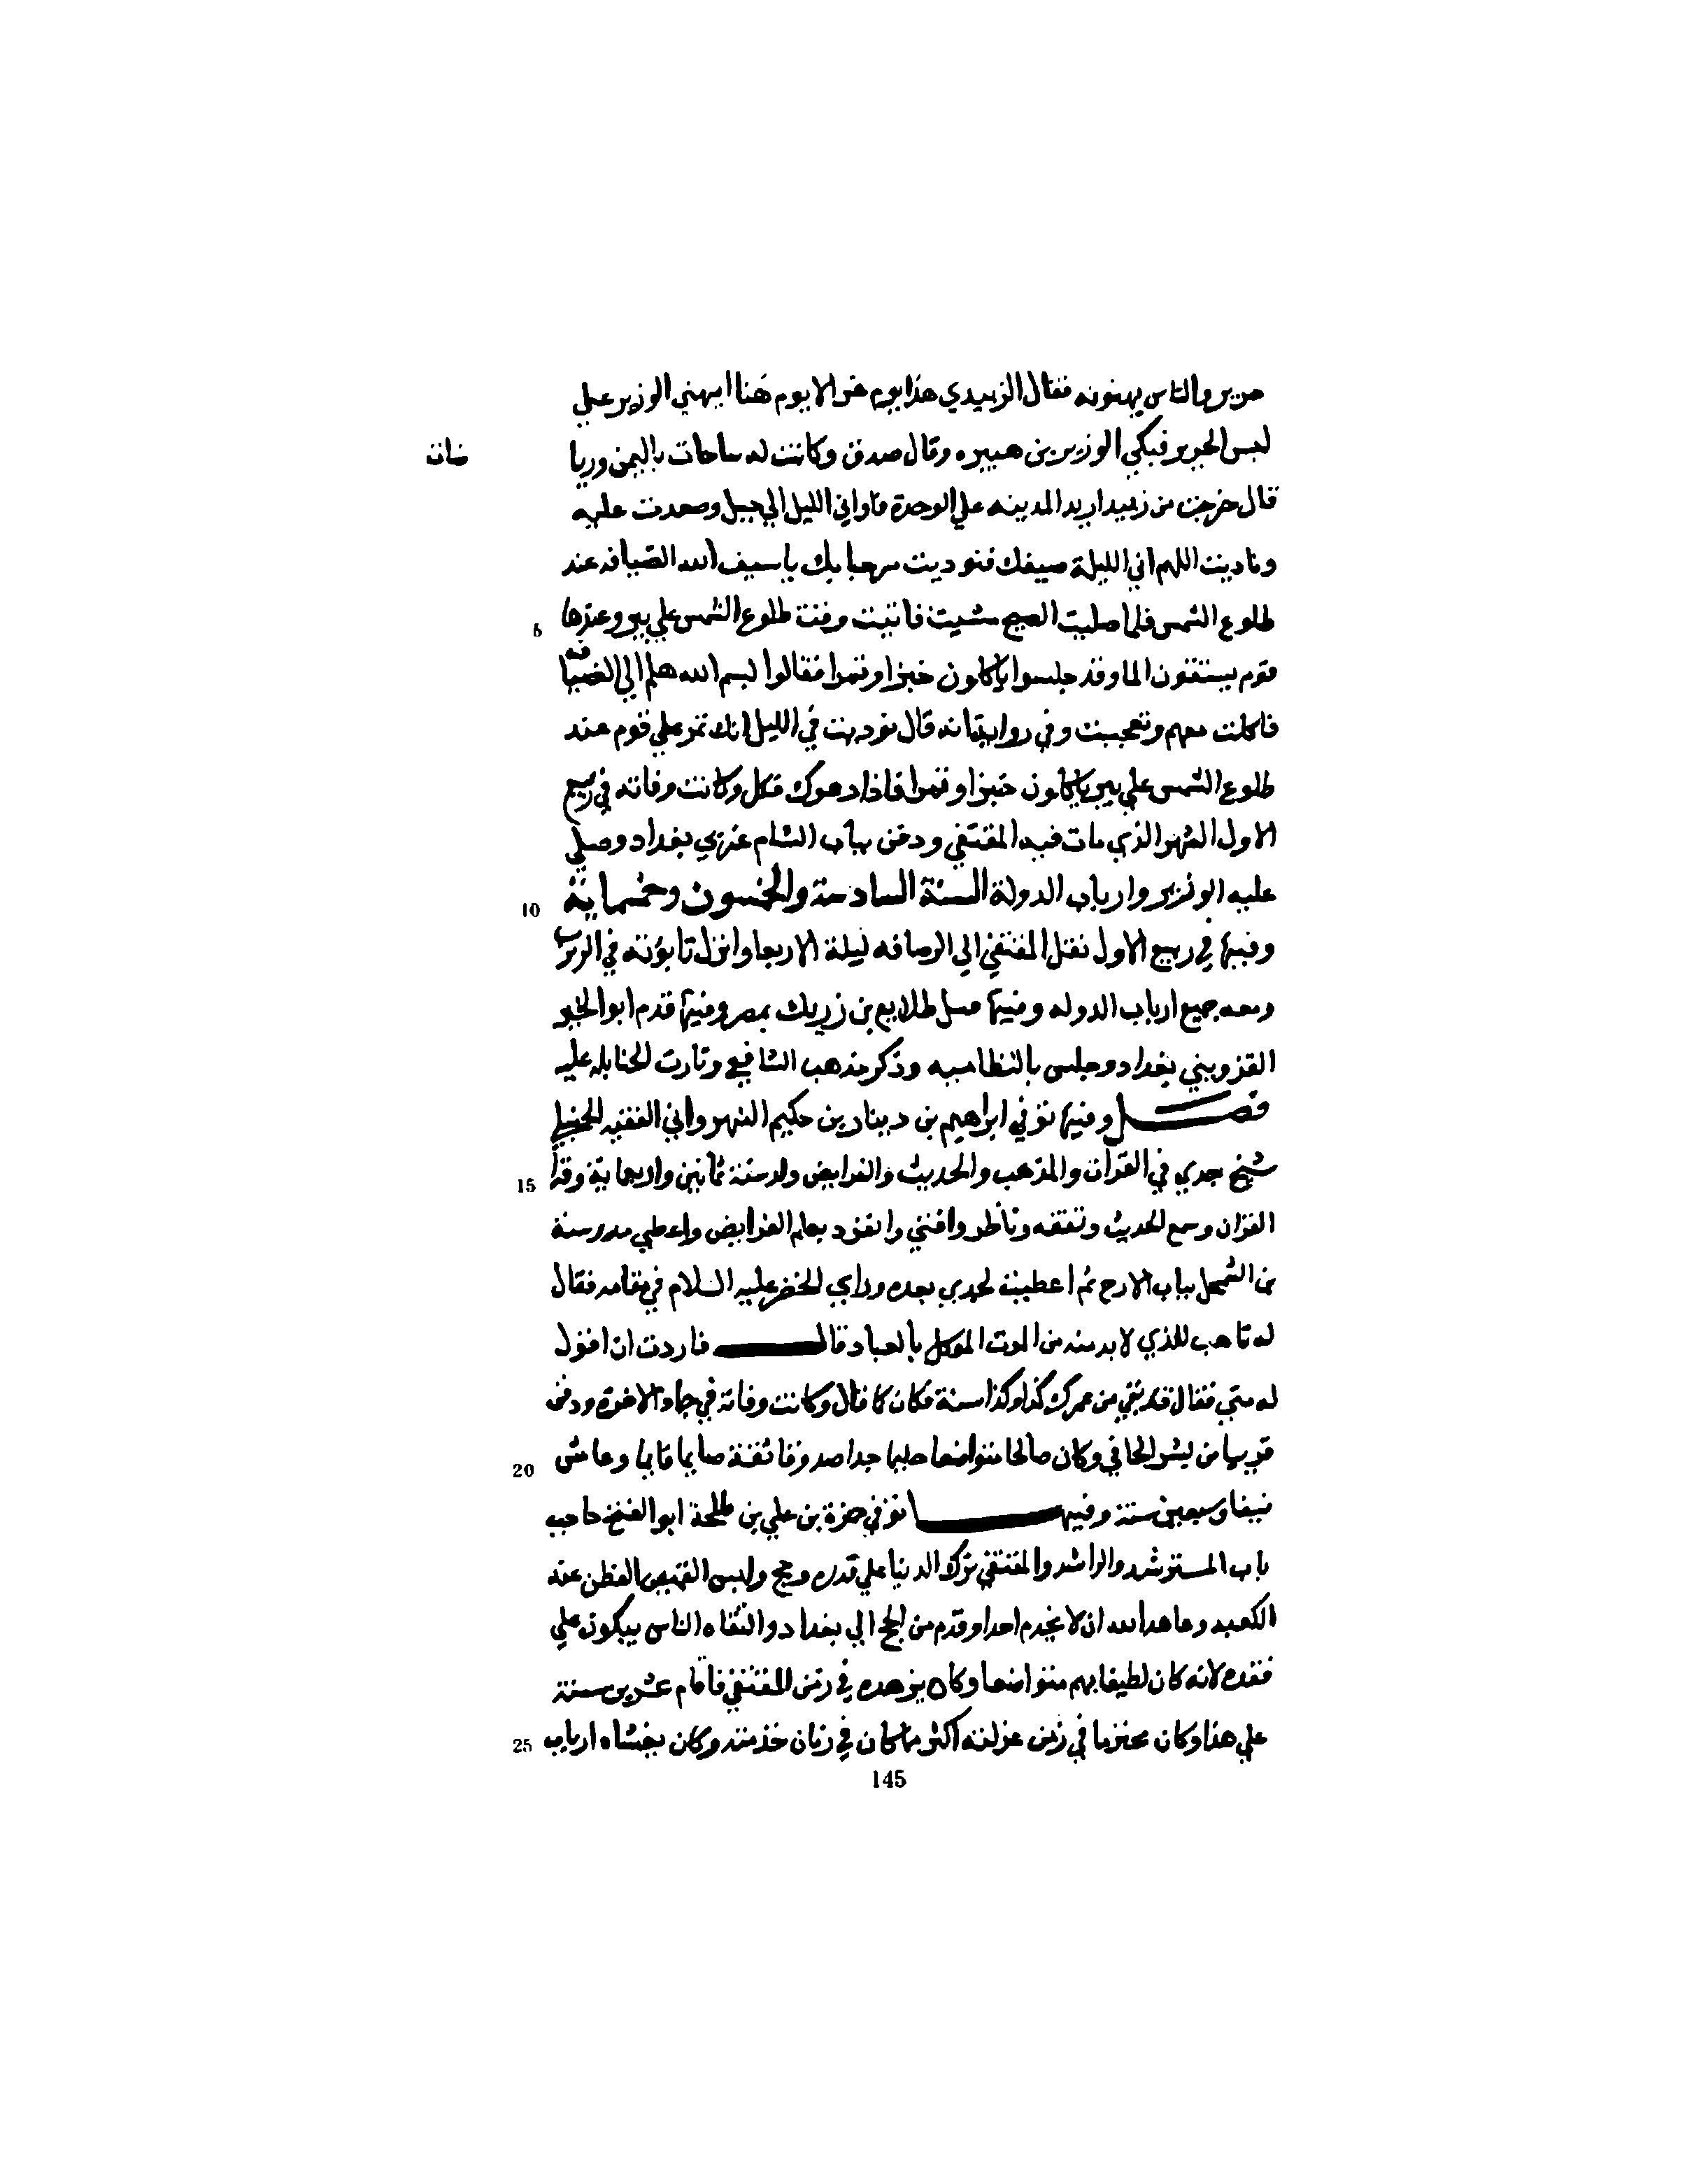 حرير والناس يهنونه فقال الزبيدي هذا يوم هنا الا يوم هنا ايهني الوزير علي
لبس الحرير فبكي الوزير بن هبيره وقال صدق وكانت له سياحات باليمن وريا
ضات
قال خرجت من زبيد اريد المدينه علي الوحدة فاواني الليل الي جبل وصعدت عليه
وناديت اللهم اني الليلة ضيفك فنوديت مرحبا بك يا ضيف الله الضيافه عند
طلوع الشمس فلما صليت الصبح مشيت فاتيت وقت طلوع الشمس علي بير وعندها
5
قوم يستقون الما وقد جلسوا ياكلون خبزا وتمرا فقالوا لبسم الله هلم الي الضيافه
فاكلت معهم وتعجبت وفي رواية انه قال نوديت في الليل انك تمر علي قوم عند
طلوع الشمس علي بير ياكلون خبزا وتمرا فاذا دعوك فكل وكانت وفاته في ربيع
الاول الشهر الذي مات فيه المقتفي ودفن بباب الشام غربي بغداد وصلي
عليه الوزير وارباب الدولة السنة السادسة والخمسون وخمسماية
10
وفيها في ربيع الاول نقل المقتفي الي الرصافه ليلة الاربعا وانزل تابوته في الزبزب
ومعه جميع ارباب الدوله وفيها قتل طلايع بن زريك بمصر وفيها قدم ابو الخير
القزويني بغداد وجلس بالنظاميه وذكر مذهب الشافعي وثارت الحنابله عليه
فصل وفيها توفي ابراهيم بن دينار بن حكيم النهرواني الفقيه الحنبلي
شيخ جدي في القران والمذهب والحديث والفرايض ولد سنة ثمانين واربعماية وقرأ
15
القران وسمع الحديث وتفقه وناظر وافتي وانفرد بعلم الفرايض واعطي مدرسة
بن الشمحل بباب الازج ثم اعطيت لجدي بعده وراي الخضر عليه السلام في مقامه فقال
له تاهب للذي لا بد منه من الموت الموكل بالعباد قال فاردت ان اقول
له متي فقال قد بقي من عمرك كذا وكذا سنة فكان كما قال وكانت وفاته في جماد الاخرة ودفن
قريبا من بشر الحافي وكان صالحا متواضعا حليما جدا صدوقا ثقة صايما قايما وعاش
20
نيفا وسبعين سنة وفيها توفي حمزة بن علي بن طلحة ابو الفتح حاجب
باب المسترشد والراشد والمقتفي ترك الدنيا علي قدره وحج ولبس القميص القطن عند
الكعبه وعاهد الله ان لا يخدم احدا وقدم من الحج الي بغداد والتقاه الناس يبكون علي
فقده لانه كان لطيفا بهم متواضعا وكان تزهده في زمن المقتفي فاقام عشرين سنة
علي هذا وكان محترما في زمن عزلته اكثر ما كان في زمان خدمته وكان يغشاه ارباب
25
145